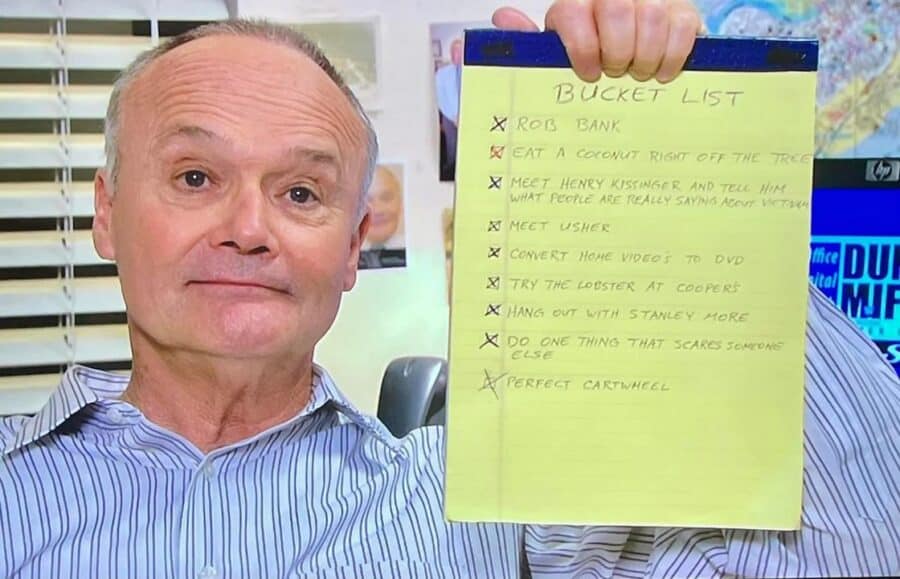 BUCKET LIST
ROB BANK
EAT A COCONUT RIGHT OFF THE TREE
MEET HENRY KISSINGER AND TELL HIM
WHAT PEOPLE ARE REALLY SAYING ABOUT VIETNAM
MEET USHER
CONVERT HOME VIDEO'S TO DVD
TRY THE LOBSTER AT COOPER'S
HANG OUT WITH STANLEY MORE
DO ONE THING THAT SCARES SOMEONE
ELSE
PERFECT CARTWHEEL
hp
ffice DUN
ital MIF